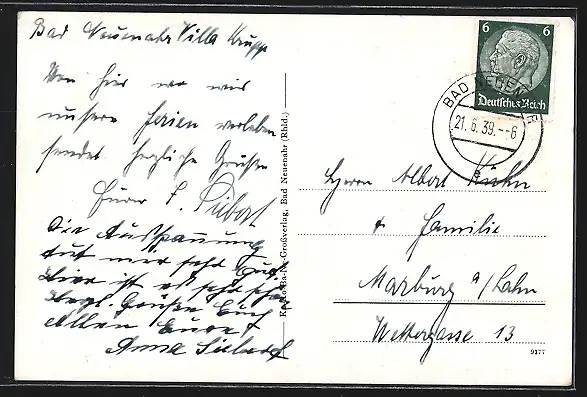 Bad Neuenahr Villa Krupp
Von hier wo wir
unsere Ferien verleben
sendet herzliche Grüsse
Die Ausspannung
tut mir sehr gut.
Hier ist es sehr schön
Herzl. Grüsse Euch
Allen Eure
Anna Siebert
Ba-Ne-Großverlag, Bad Neuenahr (Rhld.)
6 6
Deutsches Reich
BAD NEUENAHR
21.6.39.--6
Herrn Albert Kuhn
u Familie
Marburg a/Lahn
Wettergasse 13
9377